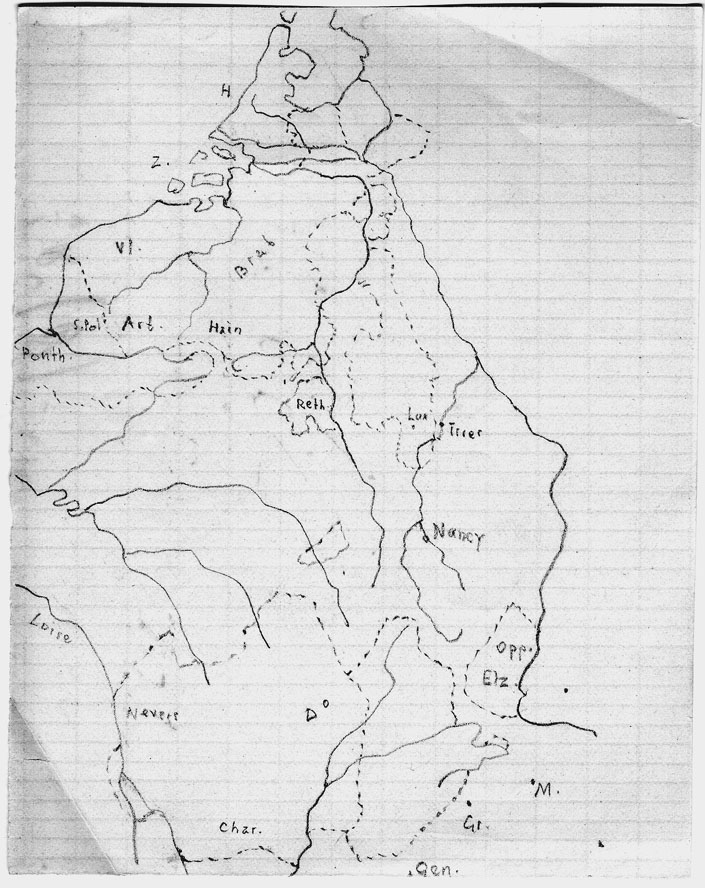 H
Z.
Vl.
Brab
S.Pol
Art.
Hain
Ponth.
Reth
Lux
Trier
Nancy
Loire
Opp.
Elz.
Nevers
D
M.
Char.
Gr.
Gen.